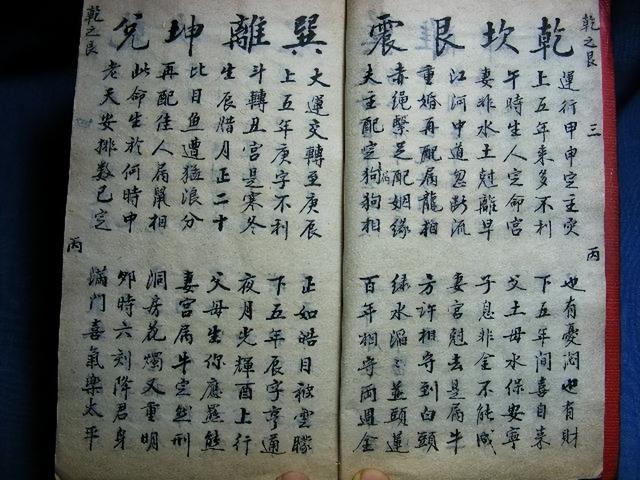 乾之艮 三 丙
乾坎艮震
運行甲申定主灾
也有憂 也有財
上五年来多不利
下五年间喜自来
午時生人定命宮
父土母水保安寧
妻非水土尅離早
子息非金不能成
江河中道忽断流
妻宮尅去是属牛
重婚再配属龍相
方许相守到白頭
赤绳繫足配姻緣
绿水 並頭蓮
夫主配定狗狗相
百年相守两遇金
巽離坤兌
大運交轉至庚辰
正如皓目被雲朦
上五年庚字不利
下五年辰字亨通
斗轉丑宮是寒冬
夜月光輝酉上行
生辰腊月正二十
父母生你應 熊
比目鱼遭猛浪分
妻宮属牛定然刑
再配佳人属鼠相
洞房花燭又重明
此命生於何時申
夘時六刻降君身
老天安排数已定
满門喜氣樂太平
乾之艮 丙